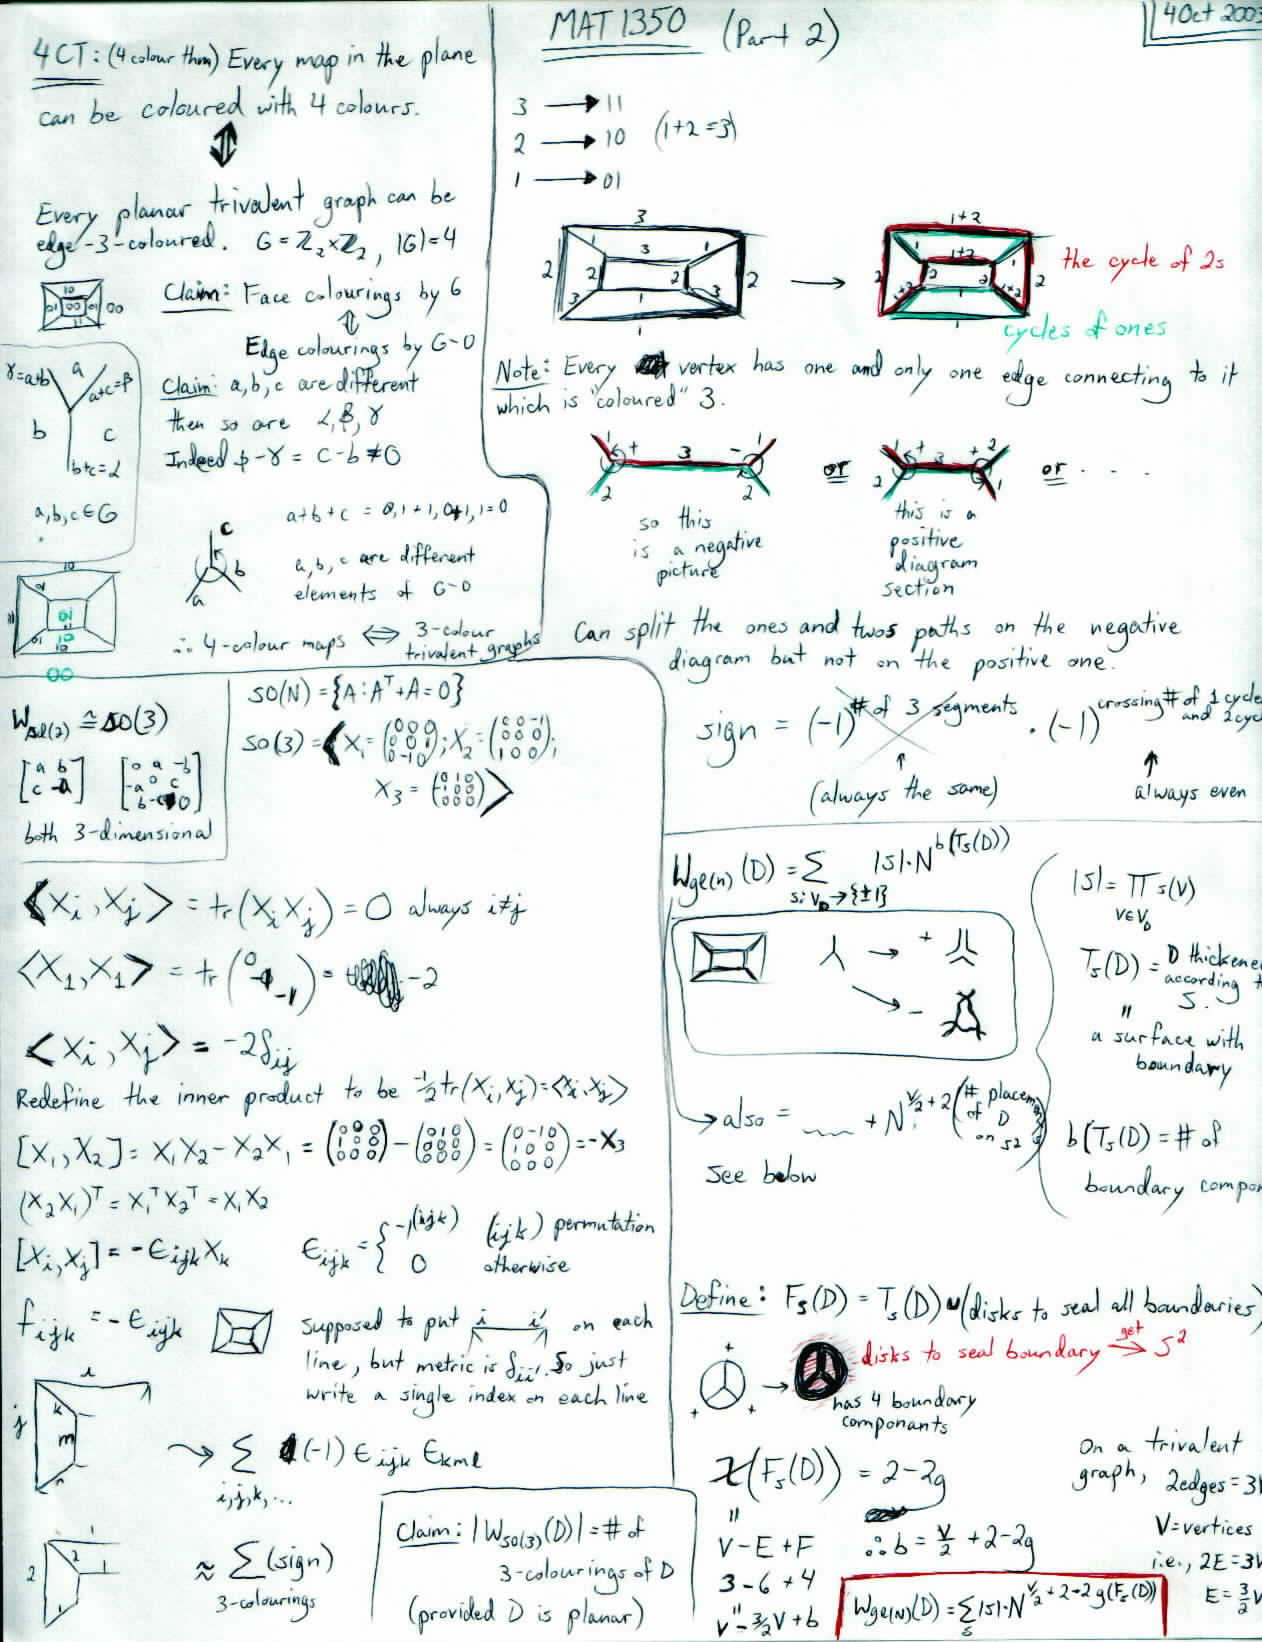 MAT 1350 (Part 2)
14 Oct 2003
4CT: (4 colour thm) Every map in the plane
can be coloured with 4 colours.
Every planar trivalent graph can be
edge-3-coloured. G = Z₂×Z₂, |G|=4
10
01 00 01 00
11
Claim: Face colourings by G
Edge colourings by G-0
γ=a+b a a+c=β
b c
b+c=α
a,b,c∈G
Claim: a,b,c are different
then so are α,β,γ
Indeed β-γ = c-b ≠ 0
c
b
a
a+b+c = 0,1+1,0+1,1=0
a,b,c are different
elements of G-0
∴ 4-colour maps ⟺ 3-colour
trivalent graphs
00
3 → 11
2 → 10 (1+2=3)
1 → 01
the cycle of 2s
cycles of ones
Note: Every vertex has one and only one edge connecting to it
which is "coloured" 3.
or
or . . .
so this
is a negative
picture
this is a
positive
diagram
section
Can split the ones and twos paths on the negative
diagram but not on the positive one.
sign = (-1)^# of 3 segments · (-1)^crossing # of 1 cycle and 2 cyc
(always the same)
always even
W_sl(2) ≅ so(3)
[a b; c -a] [0 a -b; -a 0 c; b -c 0]
both 3-dimensional
so(N) = {A : Aᵀ+A=0}
so(3) = <X₁ = (0 0 0; 0 0 1; 0 -1 0); X₂ = (0 0 -1; 0 0 0; 1 0 0);
X₃ = (0 1 0; 1 0 0; 0 0 0)>
<Xᵢ, Xⱼ> = tr(XᵢXⱼ) = 0 always i≠j
<X₁, X₁> = tr(0 -1 -1) = -2
<Xᵢ, Xⱼ> = -2δᵢⱼ
Redefine the inner product to be -½tr(Xᵢ,Xⱼ)=<Xᵢ,Xⱼ>
[X₁,X₂] = X₁X₂ - X₂X₁ = (0 0 0; 1 0 0; 0 0 0) - (0 1 0; 0 0 0; 0 0 0) = (0 -1 0; 1 0 0; 0 0 0) = -X₃
(X₂X₁)ᵀ = X₁ᵀX₂ᵀ = X₁X₂
[Xᵢ,Xⱼ] = -εᵢⱼₖXₖ
εᵢⱼₖ = { -1^(ijk) (ijk) permutation
0 otherwise
fᵢⱼₖ = -εᵢⱼₖ
supposed to put i i' on each
line, but metric is δᵢᵢ'. So just
write a single index on each line
i
j k
m
n
→ Σ (-1) εᵢⱼₖ εₖₘₗ
i,j,k,...
1
2 2 1
1
≈ Σ(sign)
3-colourings
Claim: |W_so(3)(D)| = # of
3-colourings of D
(provided D is planar)
W_gl(n)(D) = Σ |s|·N^b(Tₛ(D))
s:V_D→{±1}
|s| = Π s(v)
v∈V_D
Tₛ(D) = D thickene
according t
s.
a surface with
boundary
b(Tₛ(D)) = # of
boundary compon
also = ___ + N^(v/2+2) (# placemen of D on S2)
see below
Define: Fₛ(D) = Tₛ(D) ∪ (disks to seal all boundaries)
disks to seal boundary get → S²
has 4 boundary
componants
χ(Fₛ(D)) = 2-2g
"
V-E+F
3-6+4
"
V-3/2V+b
∴ b = V/2 + 2-2g
On a trivalent
graph, 2edges=3V
V=vertices
i.e., 2E=3V
E=3/2V
W_gl(N)(D) = Σₛ|s|·N^(V/2+2-2g(Fₛ(D)))